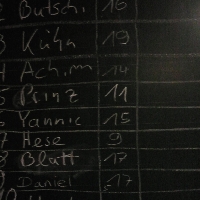 2 Butschi 16
3 Kühn 19
4 Achim 14
5 Prinz 11
6 Yannic 15
7 Hese 9
8 Blatt 17
9 Daniel 17